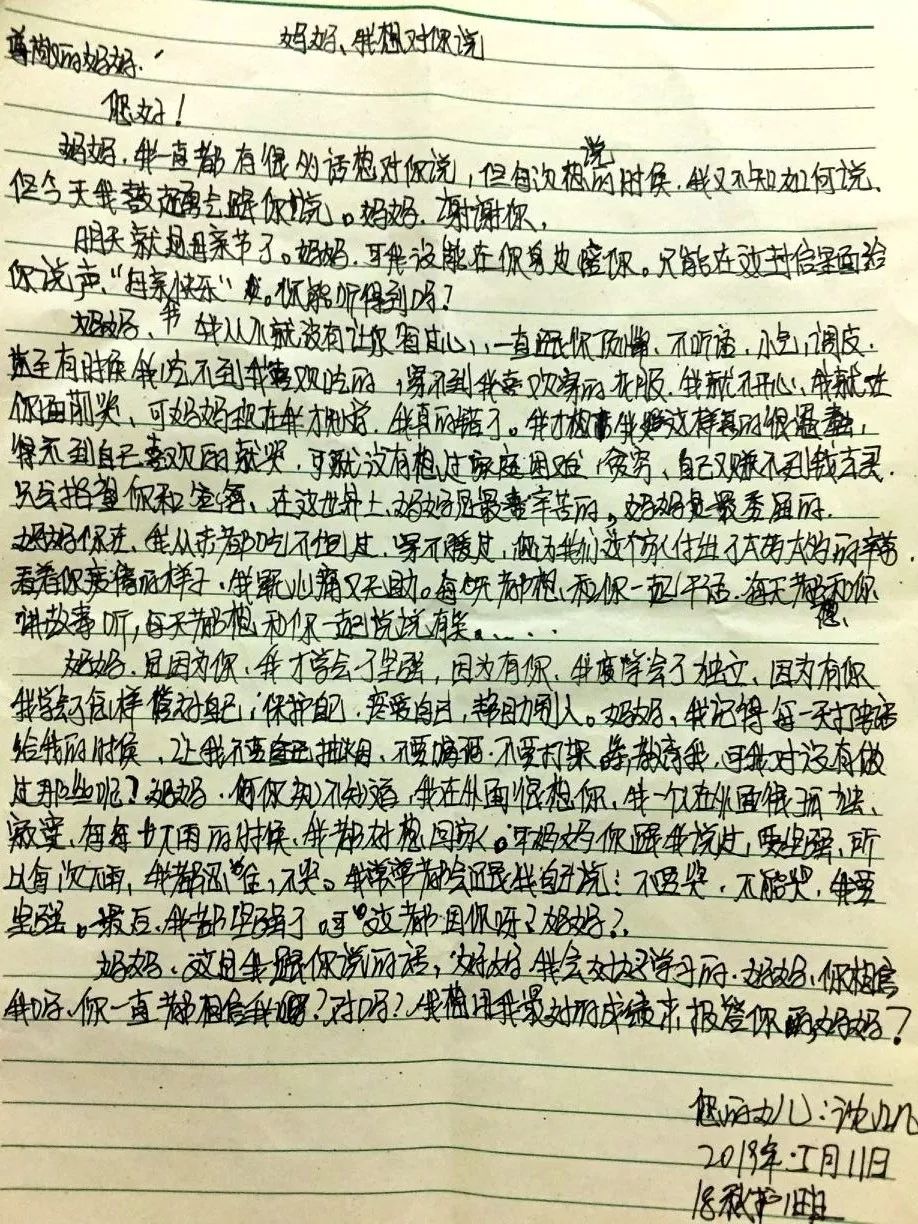 妈妈、我想对你说
尊敬的妈妈：
您好！
妈妈，我一直都有很多话想对你说，但每次想说的时候，我又不知如何说、
但今天我鼓起勇气跟你说。妈妈，谢谢你、
明天就是母亲节了。妈妈，可我没能在你身边陪你。只能在这封信里面给
你说声，“母亲快乐”。你能听得到吗？
妈妈、我从小就没有让你省过心，一直跟你顶嘴、不听话、小气，调皮、
甚至有时候我吃不到我喜欢吃的，穿不到我喜欢穿的衣服，我就不开心，我就在
你面前哭，可妈妈现在我才知道，我真的错了。我才想我这样真的很愚蠢，
得不到自己喜欢的就哭，可就没有想过家庭困难，贫穷，自己又赚不到钱去买，
只会指望你和爸爸、在这世界上、妈妈是最辛苦的，妈妈是最委屈的，
妈妈你，我从来都吃不饱过，穿不暖过，你为我们这个家付出了太多太多的辛苦，
看着你疲倦的样子，我既心痛又无助。每天都想和你一起干活，每天都想和你
讲故事听，每天都想和你一起说说有笑。.....
妈妈，是因为你，我才学会了坚强，因为有你，我才学会了独立，因为有你
我学会了怎样面对自己，保护自己，疼爱自己，帮助别人。妈妈，我记得每一天打电话
给我的时候，让我不要抽烟，不要喝酒，不要打架，教育我，可我对没有做
过那些呢？妈妈，你知不知道，我在外面很想你，我一个人在外面很孤独、
寂寞，每每下雨的时候、我都好想回家。可妈妈你跟我说过，要坚强，所
以每次下雨，我都忍住，不哭。我常常都会跟我自己说：不要哭，不能哭，我要
坚强。最后，我都坚强了，这都因你呀？妈妈？
妈妈，这是我跟你说的话，妈妈我会好好学习的，妈妈，你相信
我吗，你一直都相信我吗？对吗？我想用我最好的成绩来报答你，妈妈？
您的女儿：沈
2019年5月11日
18秋护1班